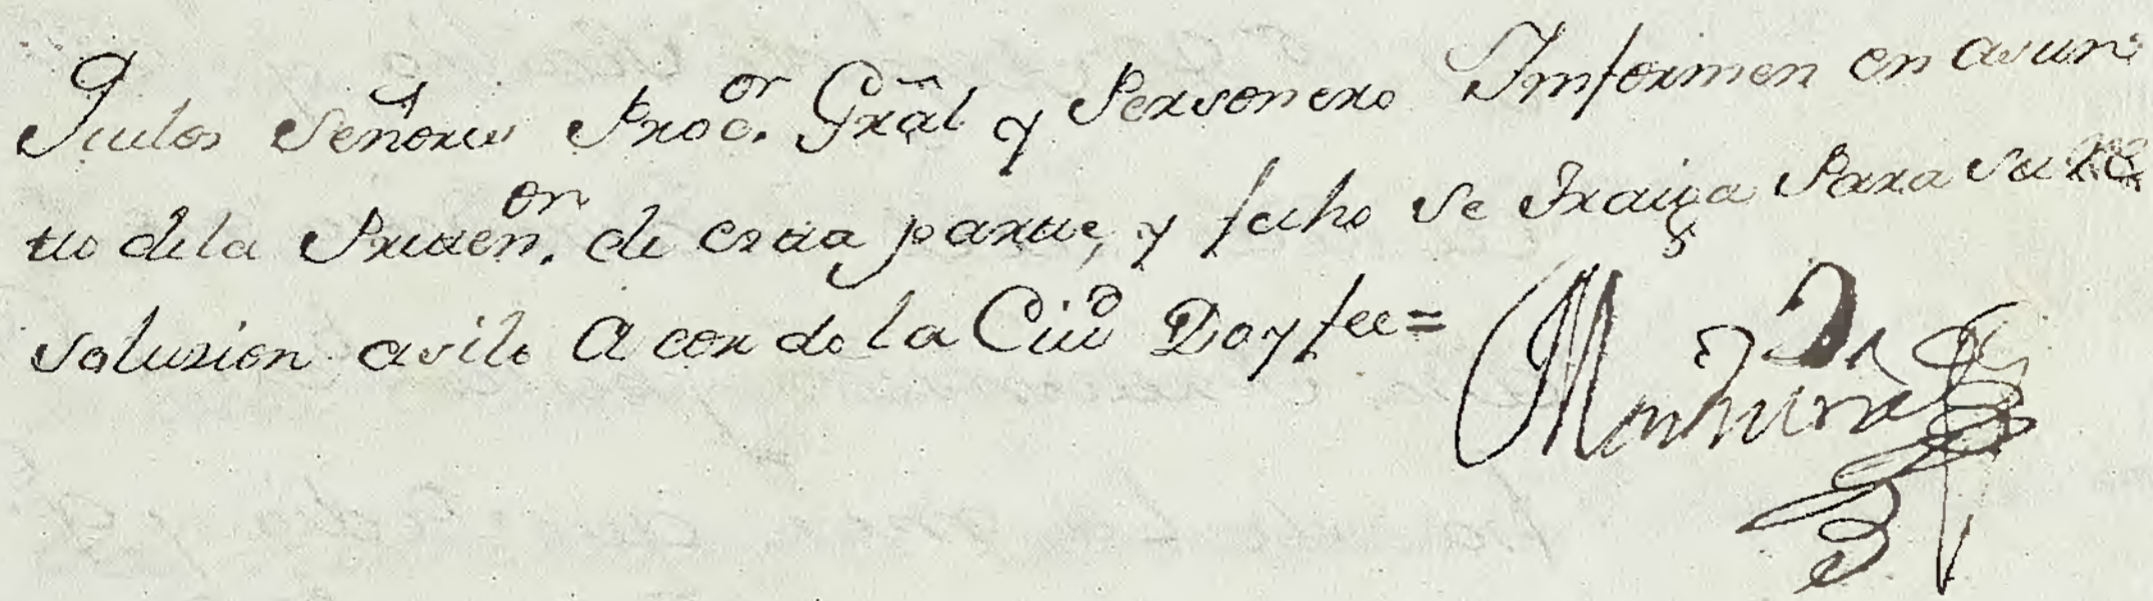 Quelos Señores Proc.or Grâl y Personero Imformen en asun
to dela Preten.on de esta parte, y fecho se Traiga Para su Re
solusion asilo Acordo la Ciud Doy fee =